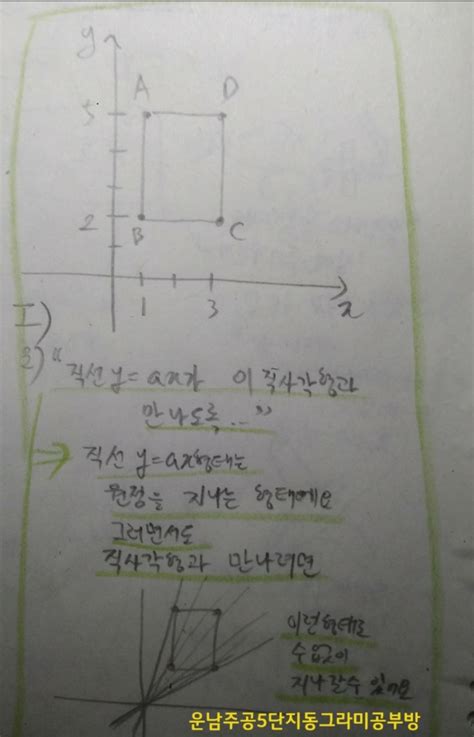 y
A D
5
2
B C
1 3 x
I)
직선 y=ax가 이 직사각형과
만나도록..."
직선 y=ax형태는
원점을 지나는 형태에요
그러면서도
직사각형과 만나려면
이런형태로
수없이
지나갈수 있어요
운남주공5단지동그라미공부방